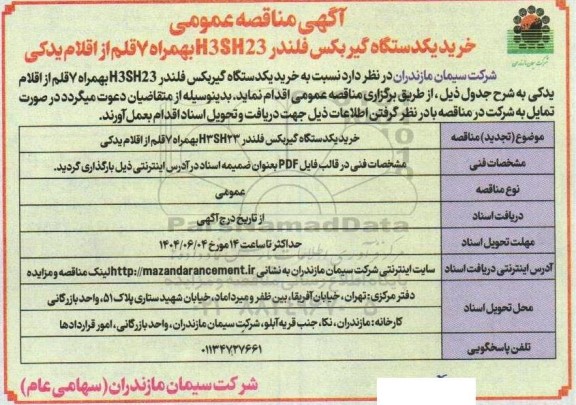 آگهی مناقصه عمومی
خرید یکدستگاه گیربکس فلندر H3SH23 بهمراه ۷ قلم از اقلام یدکی
شرکت سیمان مازندران
شرکت سیمان مازندران در نظر دارد نسبت به خرید یکدستگاه گیربکس فلندر H3SH23 بهمراه ۷ قلم از اقلام
یدکی به شرح جدول ذیل ، از طریق برگزاری مناقصه عمومی اقدام نماید. بدینوسیله از متقاضیان دعوت میگردد در صورت
تمایل به شرکت در مناقصه با در نظر گرفتن اطلاعات ذیل جهت دریافت و تحویل اسناد اقدام بعمل آورند.
موضوع (تجدید) مناقصه خرید یکدستگاه گیربکس فلندر H3SH23 بهمراه ۷ قلم از اقلام یدکی
مشخصات فنی مشخصات فنی در قالب فایل PDF بعنوان ضمیمه اسناد در آدرس اینترنتی ذیل بارگذاری گردید.
نوع مناقصه عمومی
دریافت اسناد از تاریخ درج آگهی
مهلت تحویل اسناد حداکثر تا ساعت ۱۴ مورخ ۱۴۰۴/۰۶/۰۴
آدرس اینترنتی دریافت اسناد سایت اینترنتی شرکت سیمان مازندران به نشانی http://mazandarancement.ir لینک مناقصه و مزایده
محل تحویل اسناد دفتر مرکزی : تهران ، خیابان آفریقا، بین ظفر و میرداماد، خیابان شهید ستاری پلاک ۵۱، واحد بازرگانی
کارخانه : مازندران ، نکا، جنب قریه آبلو، شرکت سیمان مازندران ، واحد بازرگانی ، امور قراردادها
تلفن پاسخگویی ۰۱۱۳۴۷۲۷۶۶۱
شرکت سیمان مازندران (سهامی عام)
ParsNamadData